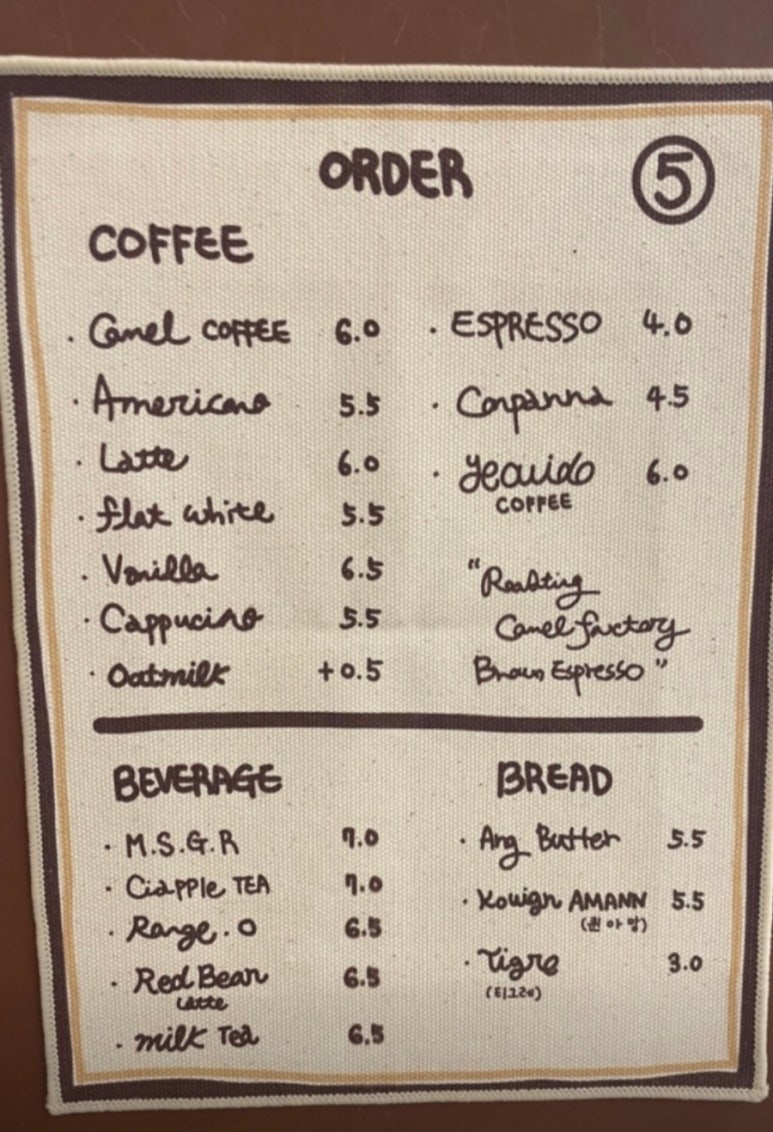 ORDER
⑤
COFFEE
· Camel COFFEE 6.0
· Americano 5.5
· Latte 6.0
· flat white 5.5
· Vanilla 6.5
· Cappucino 5.5
· Oatmilk +0.5
· ESPRESSO 4.0
· Conpanna 4.5
· yeouido 6.0
COFFEE
"Roasting
Camel factory
Braun Espresso"
BEVERAGE
· M.S.G.R 7.0
· Ciapple TEA 7.0
· Range.O 6.5
· Red Bean 6.5
Latte
· milk Tea 6.5
BREAD
· Ang Butter 5.5
· Kouign AMANN 5.5
(퀸아망)
· Tigre 3.0
(티그레)